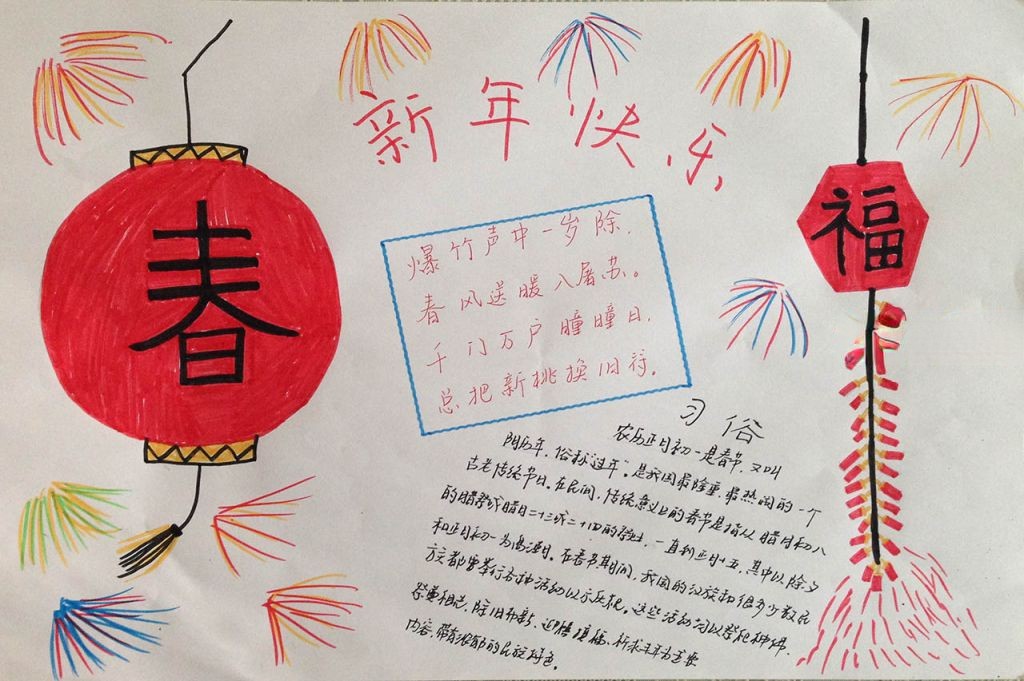 新年快乐
春
福
爆竹声中一岁除,
春风送暖入屠苏。
千门万户瞳瞳日,
总把新桃换旧符。
习俗
农历正月初一是春节,又叫
阴历年,俗称"过年"。是我国最隆重、最热闹的一个
古老传统节日。在民间,传统意义上的春节是指从腊月初八
的腊祭或腊日二十三或二十四的祭灶,一直到正月十五,其中以除夕
和正月初一为高潮。在春节期间,我国的汉族和很多少数民
族都要举行各种活动以示庆祝。这些活动均以祭祀神佛、
祭奠祖先、除旧布新、迎禧接福、祈求丰年为主要
内容,带有浓郁的民族特色。